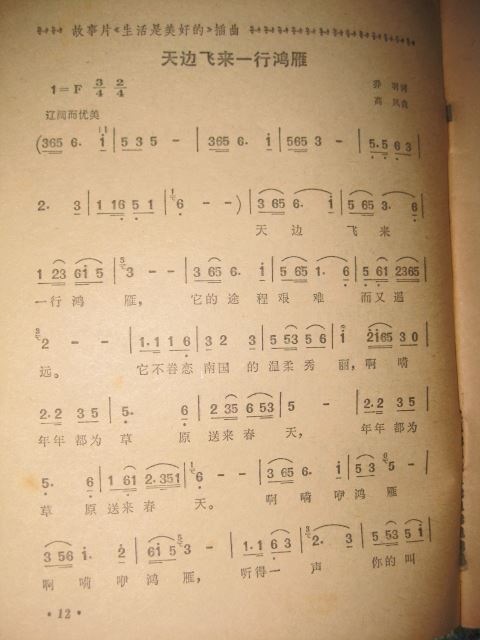 故事片《生活是美好的》插曲
天边飞来一行鸿雁
1=F 3/4 2/4
乔羽词
高风曲
辽阔而优美
(365 6. i | 535 - | 365 6. i | 565 3 - | 5.563 |
2. 3 | 11651 | 6 - - ) | 365 6. i | 5653. 6 |
天边飞来
123 6i5 | 3 - - | 365 6. i | 565 1. 6 | 561 2365 |
一行鸿雁， 它的途程艰难 而又遥
2 - - | 1.116 | 323 | 553 56 | i 2i65 30 |
远。 它不眷恋南国的温柔秀丽，啊嗬
2.2 35 | 5. 6 | 235 653 | 5 - | 2.2 35 |
年年都为草原送来春天， 年年都为
5. 6 | 161 2.351 | 6 - - | 365 6. i | 53 5 - |
草原送来春天。 啊嗬咿鸿雁
356 i. 2 | 6i5 3 - | 1.163 | 2. 3 | 553 51 |
啊嗬咿鸿雁， 听得一声 你的叫
·12·